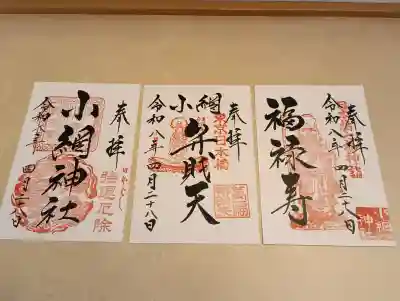 奉拝
小網神社
強運厄除
令和八年 四月二十八日
奉拝
東京日本橋
小網
弁財天
萬福舟乗
令和八年 四月二十八日
奉拝
福禄寿
令和八年 四月二十八日
小網神社